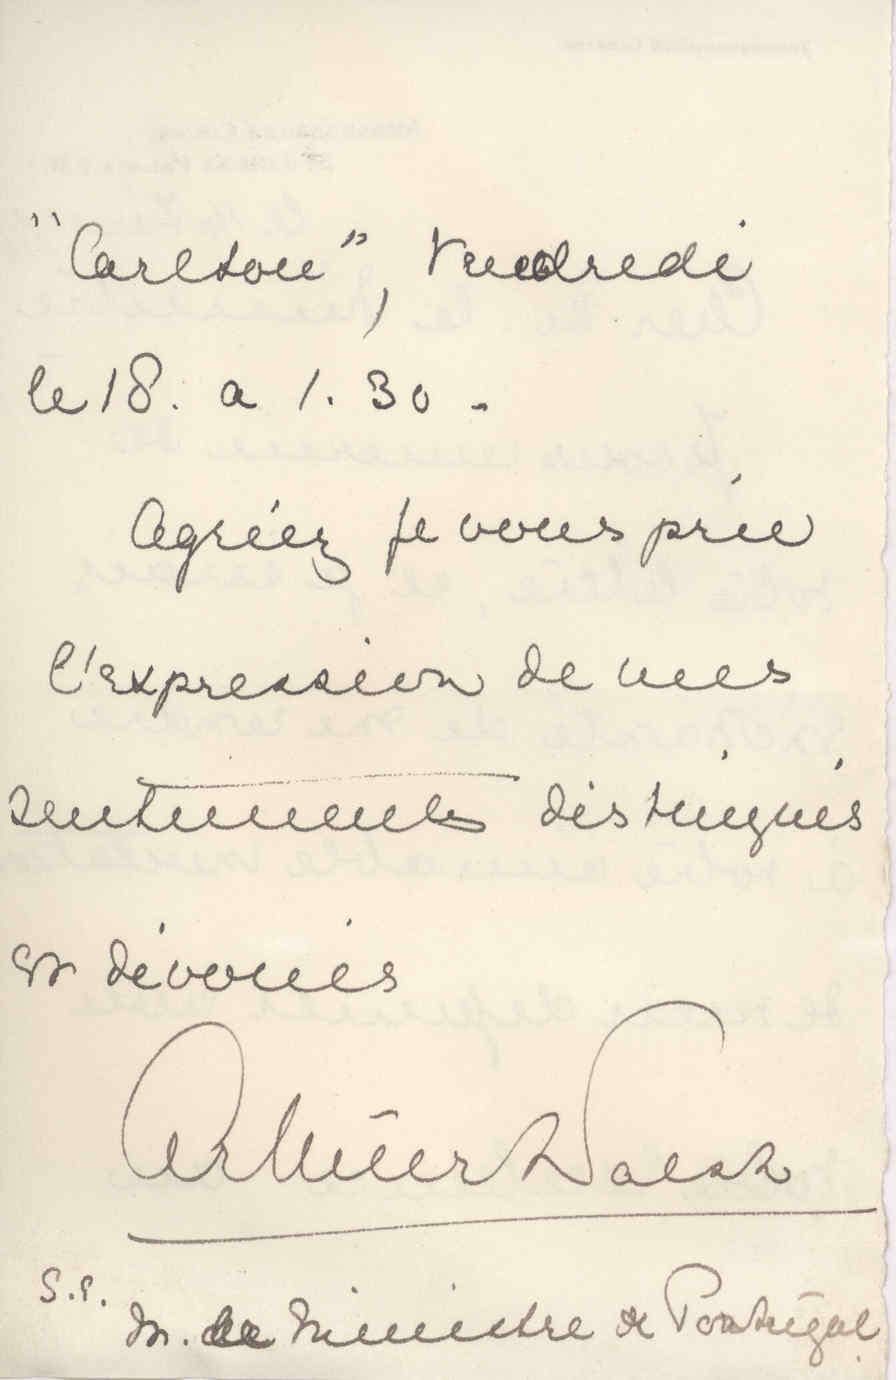 "Carlton", Vendredi
le 18. a 1.30 -
Agréez je vous prie
l'expression de mes
sentiments distingués
et dévoués
Arthur Walsh
S.E.
M. le Ministre de Portugal